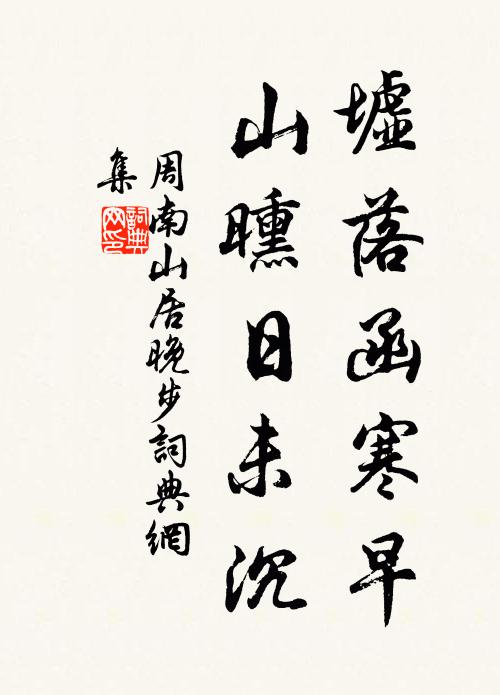 墟落函寒早
山曛日未沉
周南山居晚步詞典網
集
詞典
网印